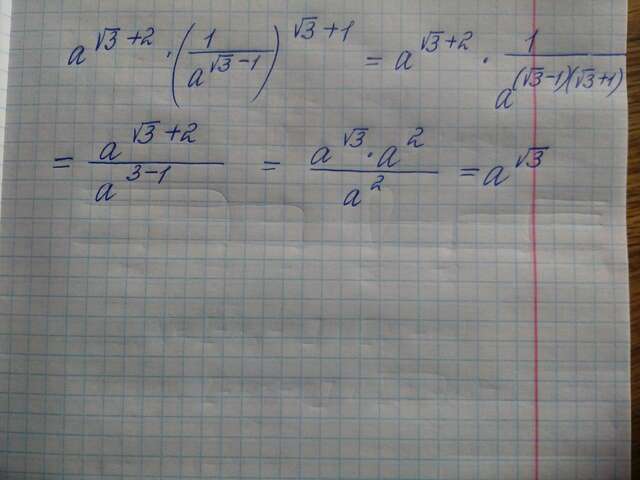 a^{√3+2} · (1/a^{√3-1})^{√3+1} = a^{√3+2} · 1/a^{(√3-1)(√3+1)}
= a^{√3+2}/a^{3-1} = a^{√3}·a^{2}/a^{2} = a^{√3}